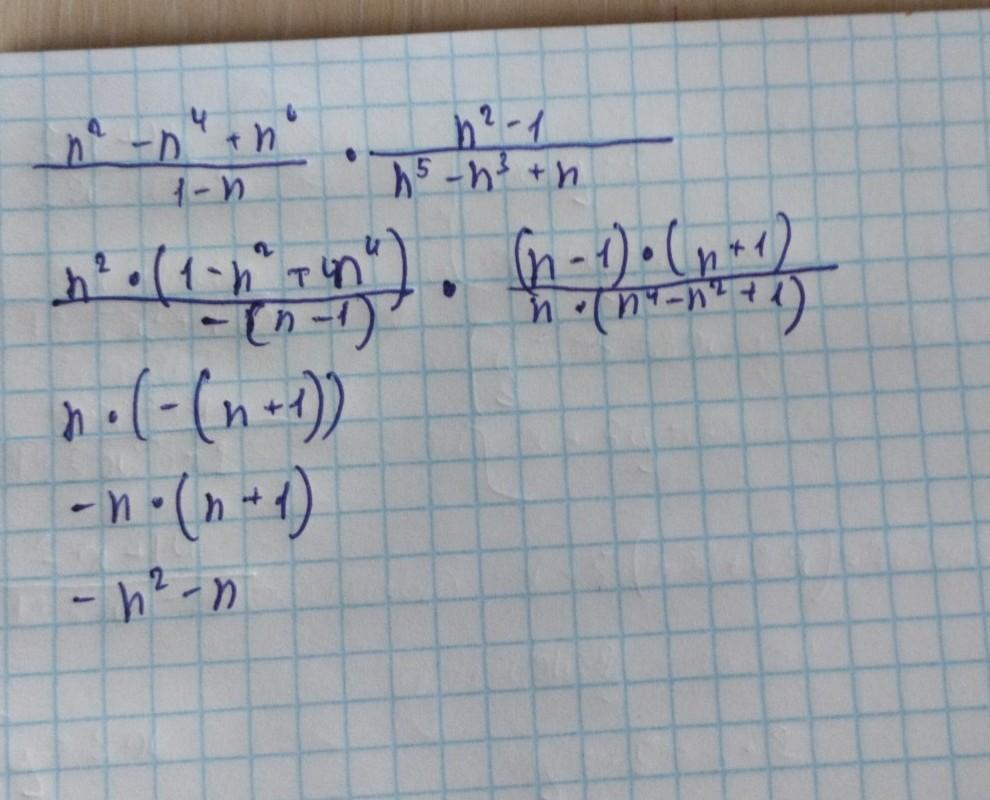 (n² - n⁴ + n⁶)/(1 - n) · (n² - 1)/(n⁵ - n³ + n)
(n² · (1 - n² + n⁴))/(-(n - 1)) · ((n - 1) · (n + 1))/(n · (n⁴ - n² + 1))
n · (-(n + 1))
-n · (n + 1)
-n² - n